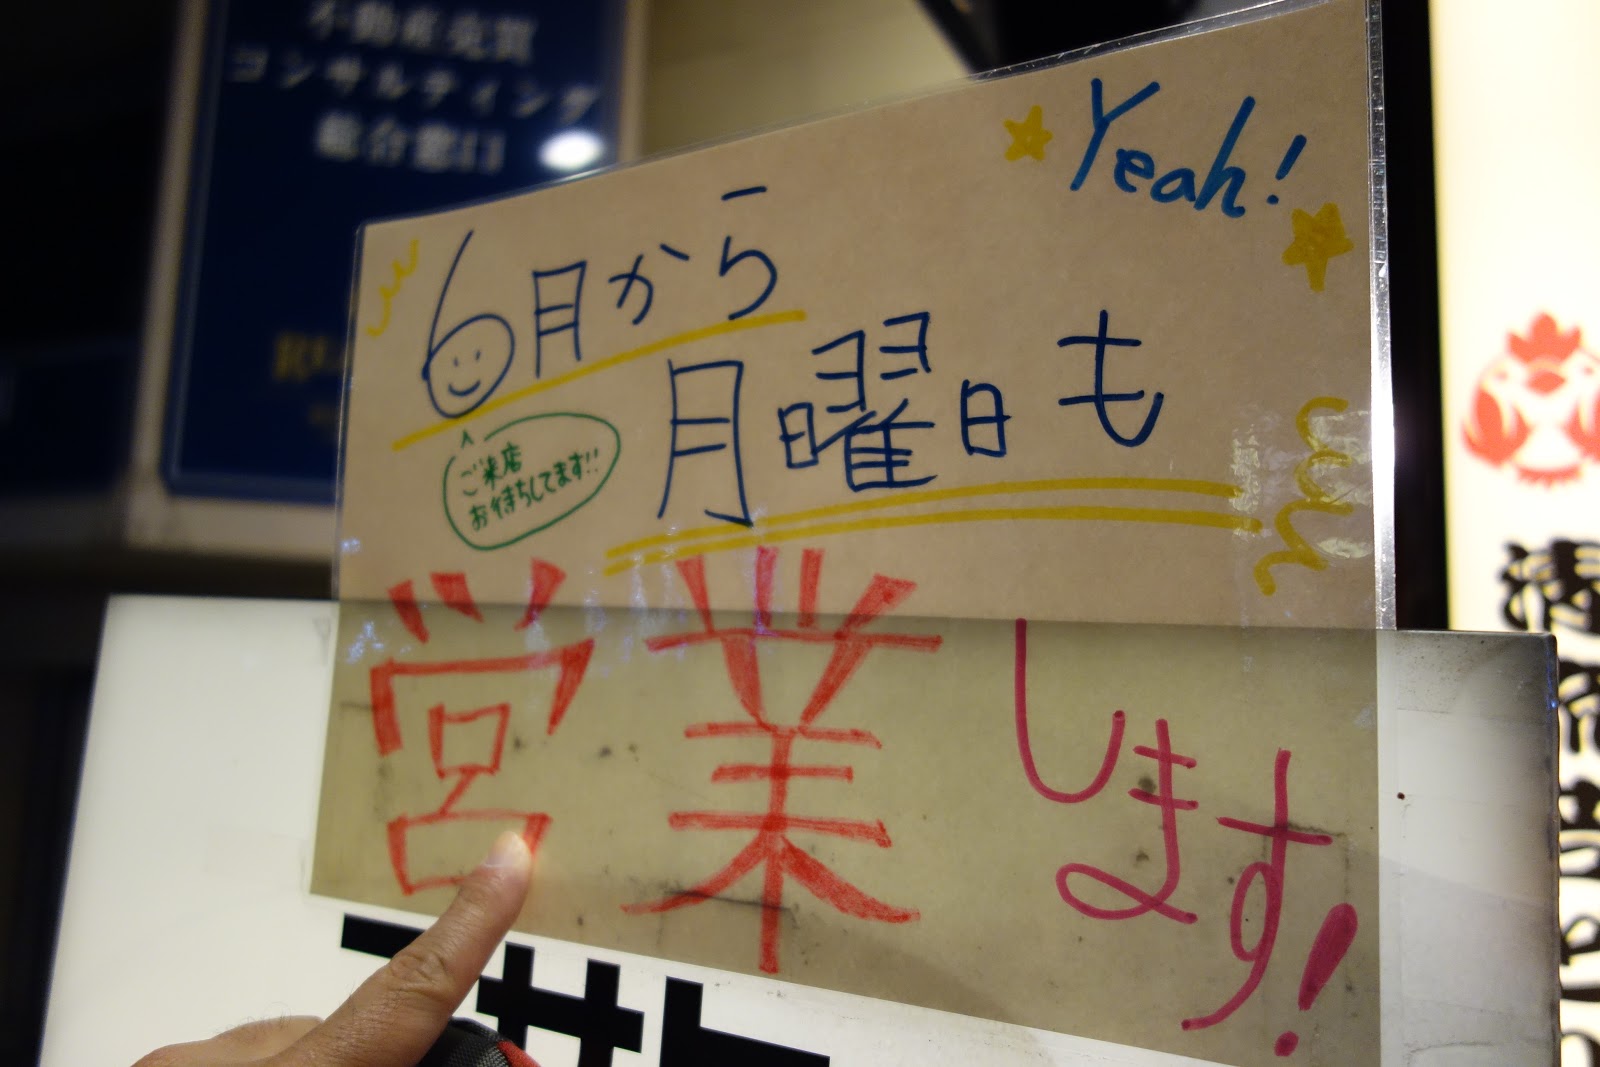 不動産売買
コンサルティング
総合窓口
Yeah!
6月から
月曜日も
ご来店
お待ちしてます!!
営業します!